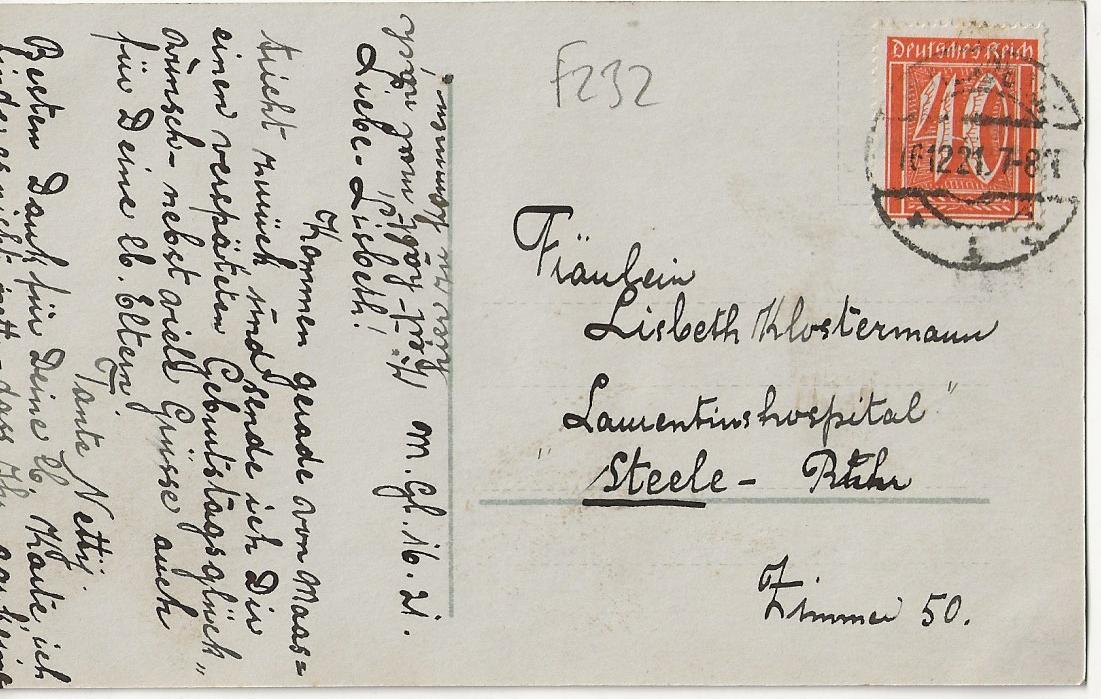 F232
Deutsches Reich
40
16.12.21. 7-8N
Fräulein
Lisbeth Klostermann
„Laurentiushospital"
Steele - Ruhr
Zimmer 50.
M. Gl. 16. 21.
Liebe Lisbeth!
Kommen gerade von Maas=
tricht zurück und sende ich Dir
einen verspäteten Geburtstagsglück„
wunsch - nebst viele Grüsse auch
für Deine lb. Eltern.
Tante Netty.
Besten Dank für Deine lb. Karte, ich
finde es nicht nett - dass Ihr gar keine
hier zu kommen